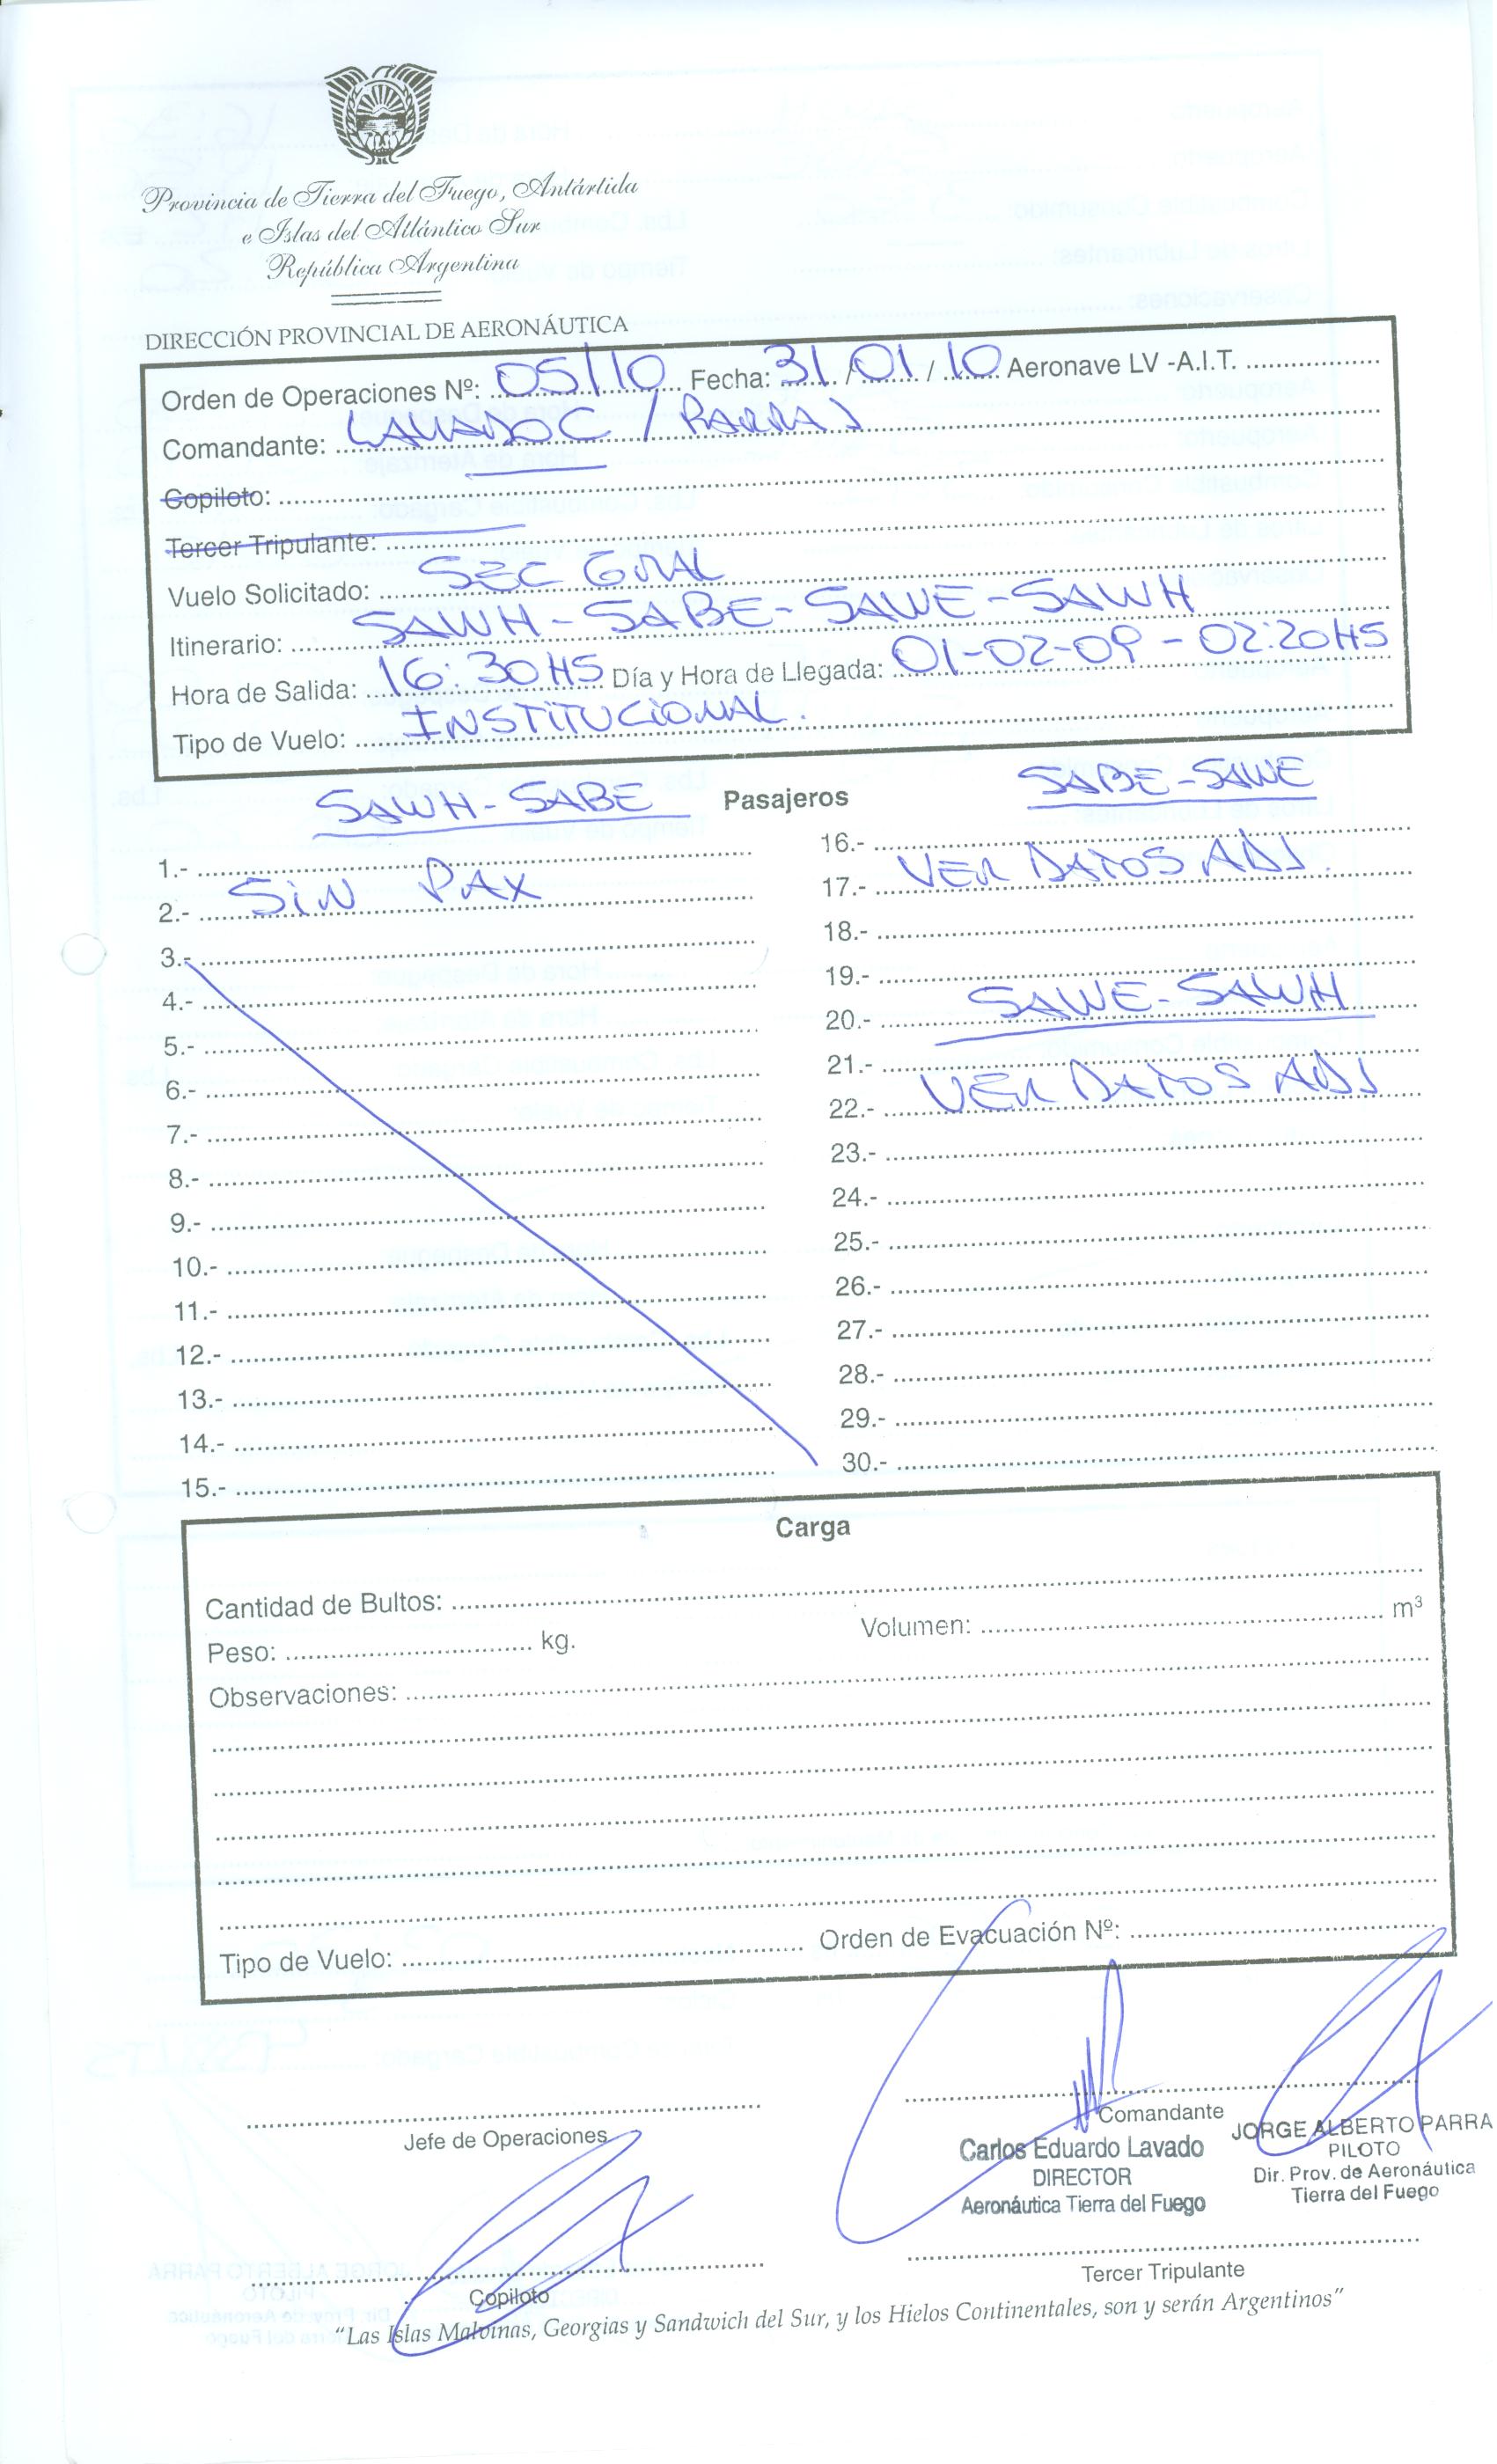 Provincia de Tierra del Fuego, Antártida
e Islas del Atlántico Sur
República Argentina
DIRECCIÓN PROVINCIAL DE AERONÁUTICA
Orden de Operaciones Nº: 05/10 Fecha: 31/01/10 Aeronave LV -A.I.T.
Comandante: LAVADO C / PARRA J
Copiloto:
Tercer Tripulante:
Vuelo Solicitado: SEC GRAL
Itinerario: SAWH-SABE-SAWE-SAWH
Hora de Salida: 16:30HS Día y Hora de Llegada: 01-02-09 - 02:20HS
Tipo de Vuelo: INSTITUCIONAL.
SAWH-SABE Pasajeros SABE-SAWE
1.-
2.- SIN PAX
3.-
4.-
5.-
6.-
7.-
8.-
9.-
10.-
11.-
12.-
13.-
14.-
15.-
16.-
17.- VER DATOS ADJ.
18.-
19.-
20.- SAWE-SAWH
21.-
22.- VER DATOS ADJ
23.-
24.-
25.-
26.-
27.-
28.-
29.-
30.-
Carga
Cantidad de Bultos:
Peso: kg. Volumen: m³
Observaciones:
Tipo de Vuelo: Orden de Evacuación Nº:
Jefe de Operaciones
Comandante
Carlos Eduardo Lavado
DIRECTOR
Aeronáutica Tierra del Fuego
JORGE ALBERTO PARRA
PILOTO
Dir. Prov. de Aeronáutica
Tierra del Fuego
Copiloto
Tercer Tripulante
"Las Islas Malvinas, Georgias y Sandwich del Sur, y los Hielos Continentales, son y serán Argentinos"